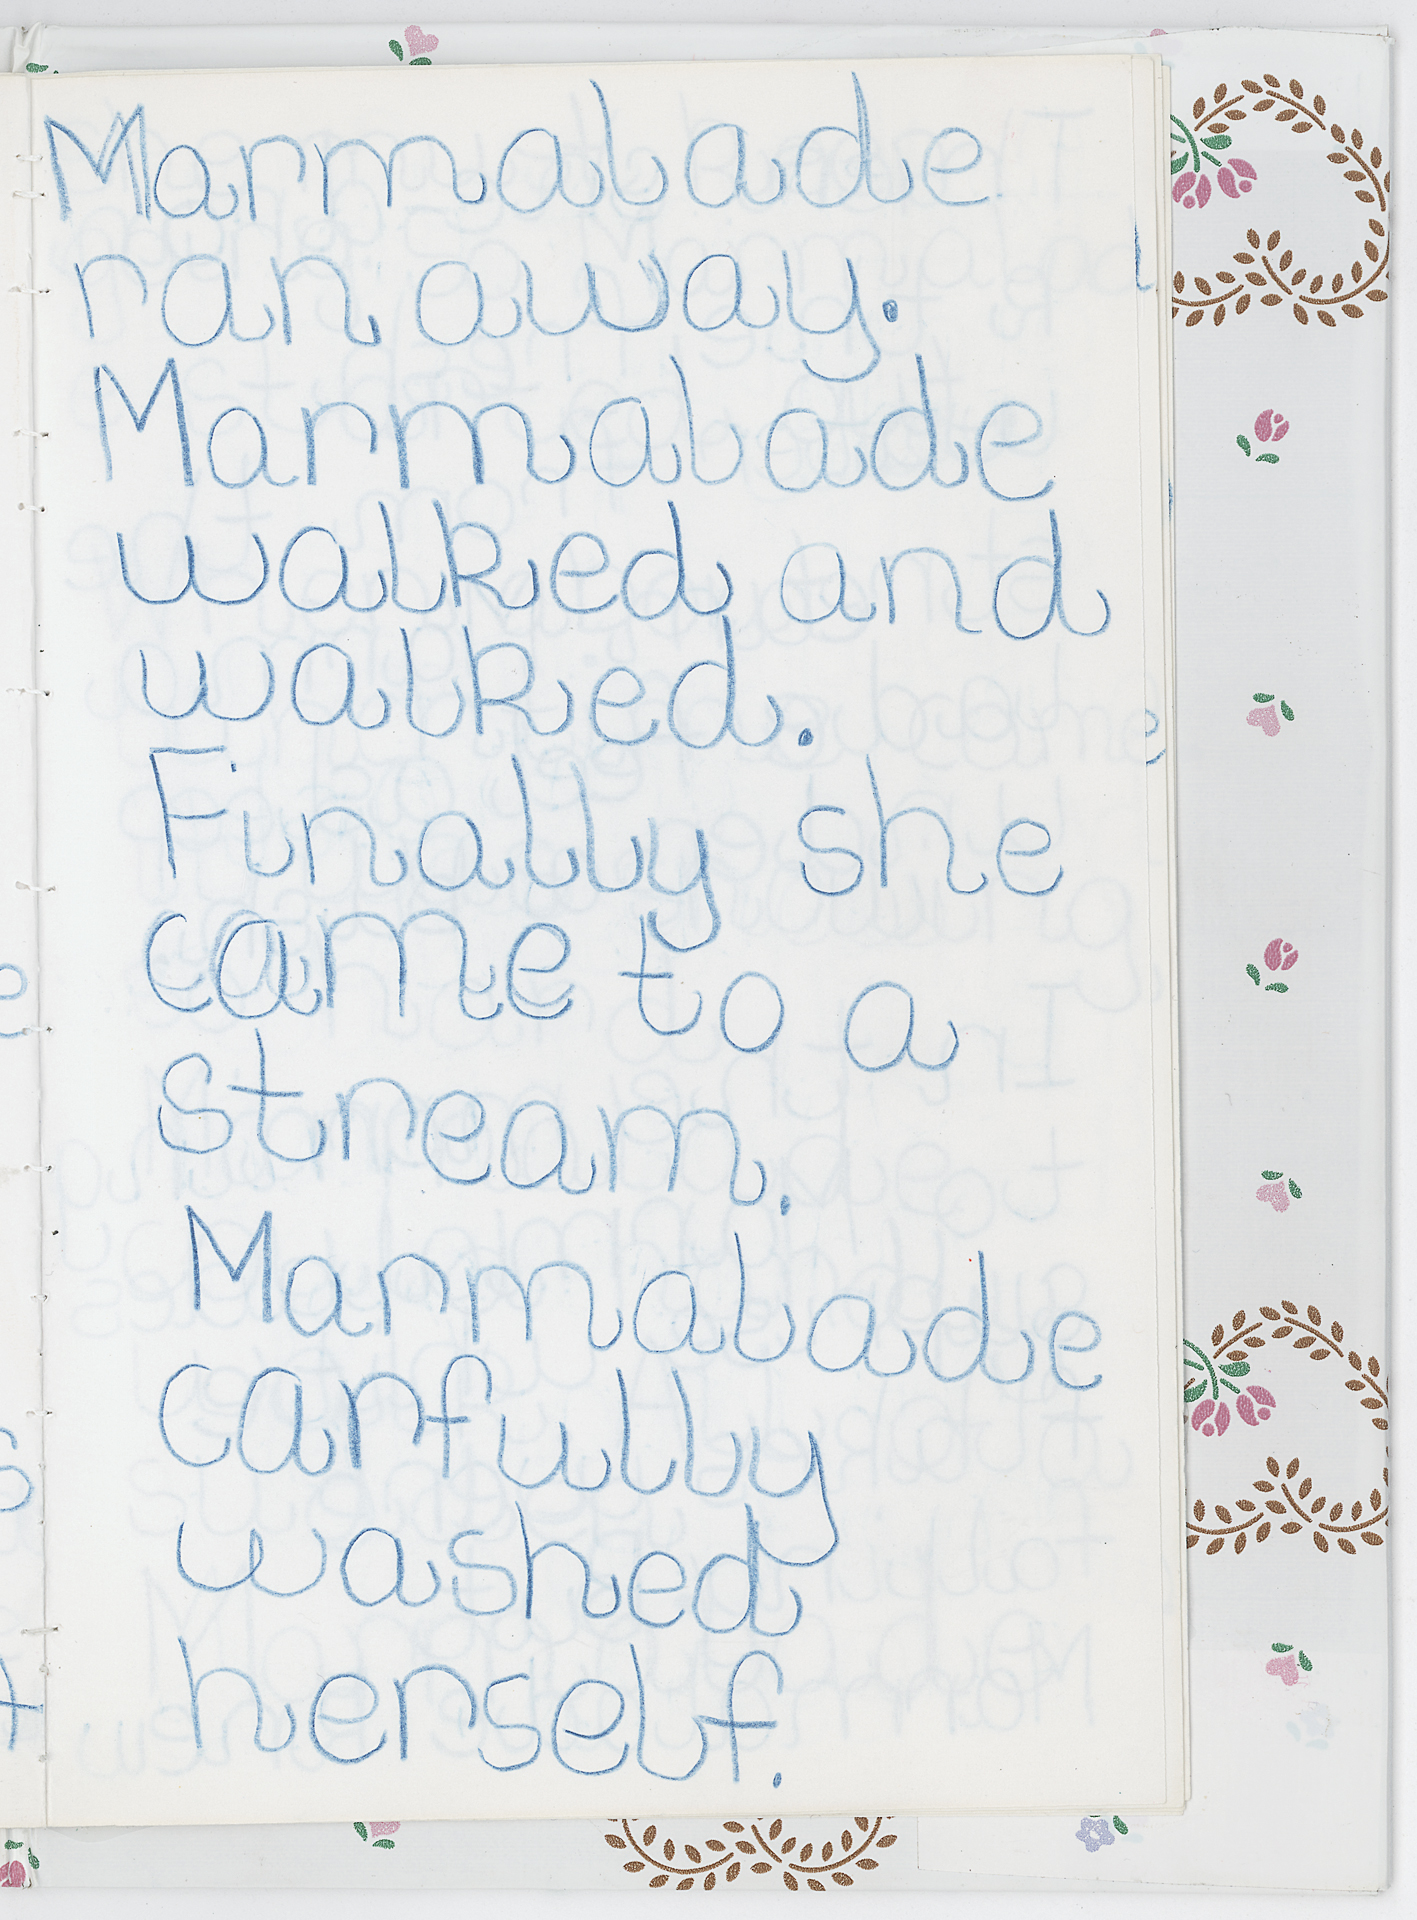 Marmalade
ran away.
Marmalade
walked and
walked.
Finally she
came to a
stream.
Marmalade
carfully
washed
herself.